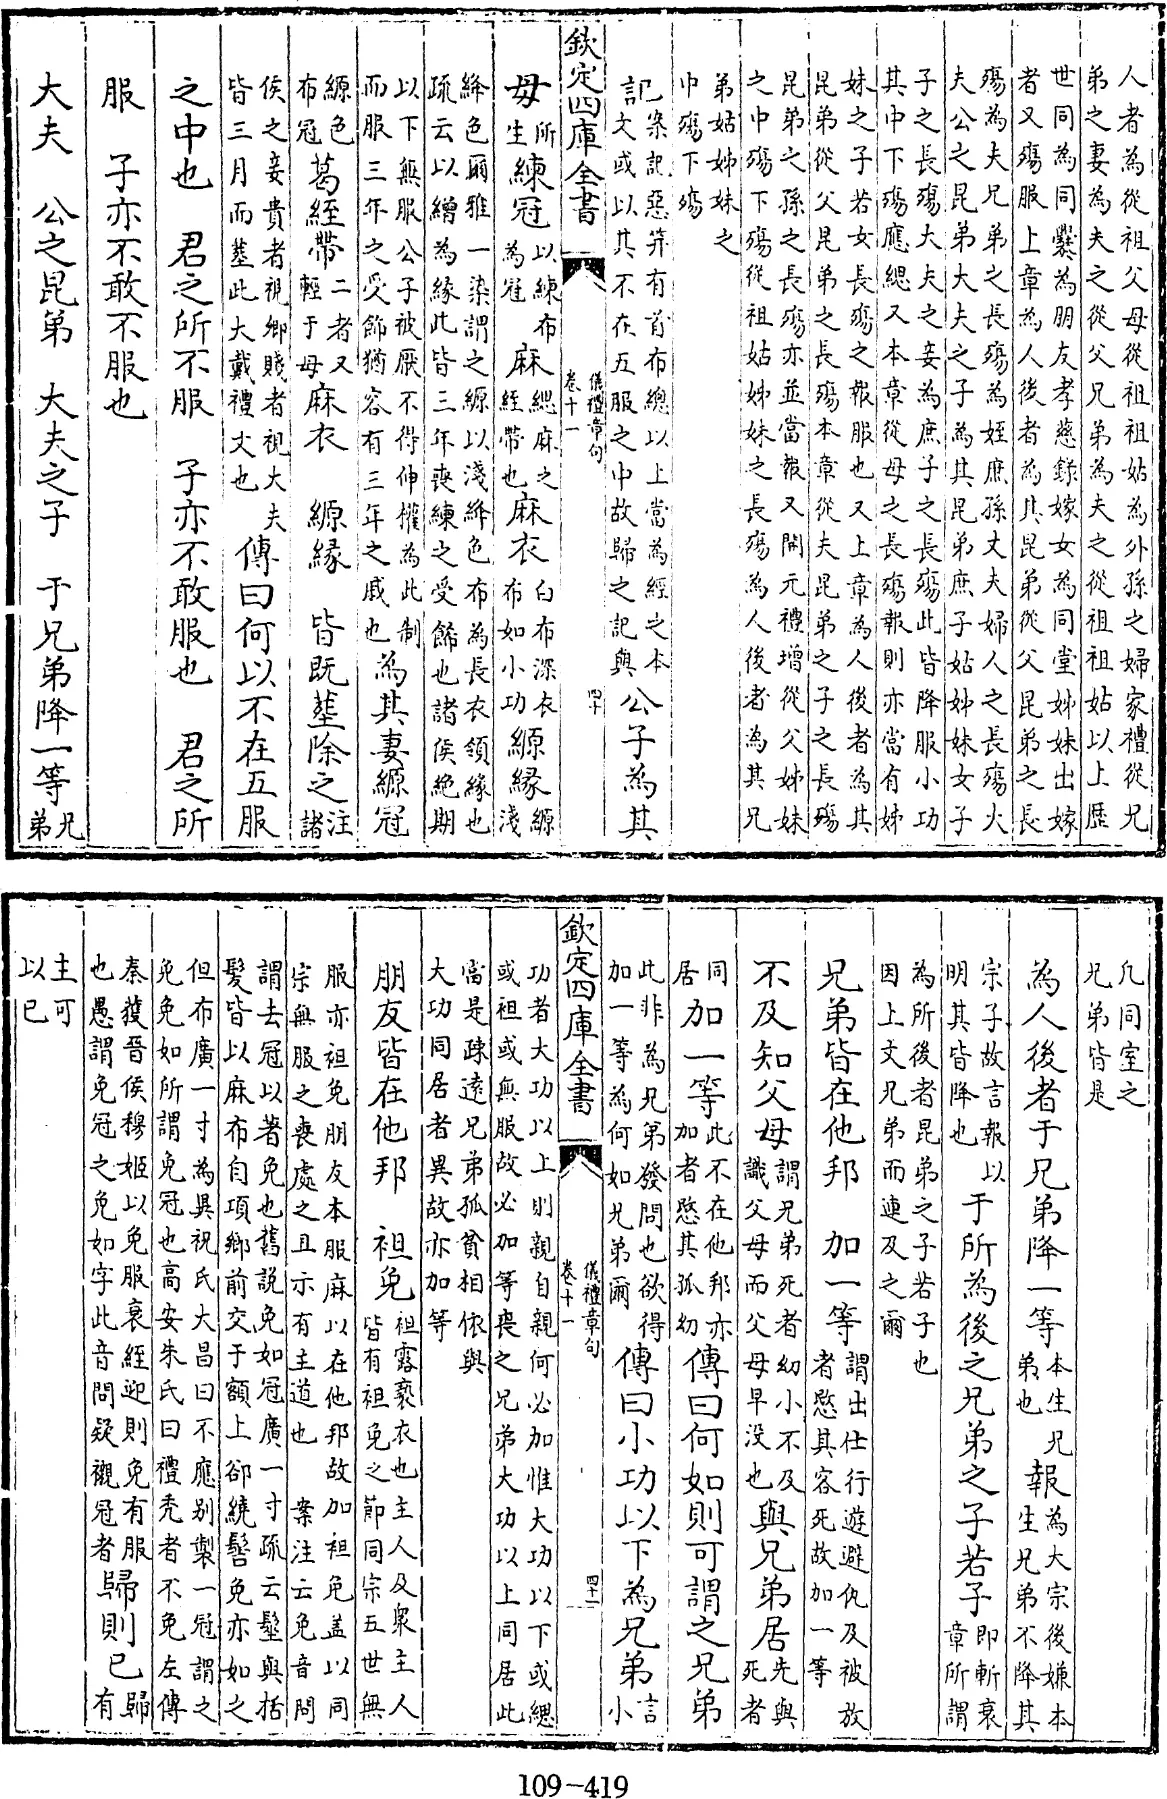 人者為從祖父母從祖祖姑為外孫之婦家禮從兄
弟之妻為夫之從父兄弟為夫之從祖祖姑以上歷
世同為同爨為朋友孝慈錄嫁女為同堂姊妹出嫁
者又殤服上章為人後者為其昆弟從父昆弟之長
殤為夫兄弟之長殤為姪庶孫丈夫婦人之長殤大
夫公之昆弟大夫之子為其昆弟庶子姑姊妹女子
子之長殤大夫之妾為庶子之長殤此皆降服小功
其中下殤應緦又本章從母之長殤報則亦當有姊
妹之子若女長殤之報服也又上章為人後者為其
昆弟從父昆弟之長殤本章從夫昆弟之子之長殤
昆弟之孫之長殤亦並當報又開元禮增從父姊妹
之中殤下殤從祖姑姊妹之長殤為人後者為其兄
弟姑姊妹之
中殤下殤
記案記惡笄有首布總以上當為經之本文或以其不在五服之中故歸之記與公子為其
欽定四庫全書 儀禮章句卷十一 四十
母所生練冠以練布為冠麻緦麻之絰帶也麻衣白布深衣布如小功縓緣縓淺
絳色爾雅一染謂之縓以淺絳色布為長衣領緣也
疏云以繒為緣此皆三年喪練之受飾也諸侯絶期
以下無服公子被厭不得伸權為此制而服三年之受飾猶容有三年之戚也為其妻縓冠
縓色布冠葛絰帶二者又輕于母麻衣 縓緣 皆既葬除之注諸
侯之妾貴者視卿賤者視大夫皆三月而葬此大戴禮文也傳曰何以不在五服
之中也 君之所不服 子亦不敢服也 君之所
服 子亦不敢不服也
大夫 公之昆弟 大夫之子 于兄弟降一等兄弟
凡同室之
兄弟皆是
為人後者于兄弟降一等本生兄弟也報為大宗後嫌本生兄弟不降其
宗子故言報以明其皆降也于所為後之兄弟之子若子即斬衰章所謂
為所後者昆弟之子若子也
因上文兄弟而連及之爾
兄弟皆在他邦 加一等謂出仕行遊避仇及被放者愍其客死故加一等
不及知父母謂兄弟死者幼小不及識父母而父母早沒也與兄弟居先與死者
同居加一等此不在他邦亦加者愍其孤幼傳曰何如則可謂之兄弟
此非為兄弟發問也欲得加一等為何如兄弟爾傳曰小功以下為兄弟言小
欽定四庫全書 儀禮章句卷十一 四十一
功者大功以上則親自親何必加惟大功以下或緦
或袒或無服故必加等喪之兄弟大功以上同居此
當是疎遠兄弟孤貧相依與
大功同居者異故亦加等
朋友皆在他邦 袒免袒露褻衣也主人及衆主人皆有袒免之節同宗五世無
服亦袒免朋友本服麻以在他邦故加袒免盖以同
宗無服之喪處之且示有主道也 案注云免音問
謂去冠以著免也舊說免如冠廣一寸疏云髽與括
髮皆以麻布自項鄉前交于額上卻繞髻免亦如之
但布廣一寸為異祝氏大昌曰不應别製一冠謂之
免免如所謂免冠也高安朱氏曰禮禿者不免左傳
秦獲晉侯穆姬以免服衰絰迎則免有服也愚謂免冠之免如字此音問疑襯冠者歸則已歸有
主可
以已
109-419